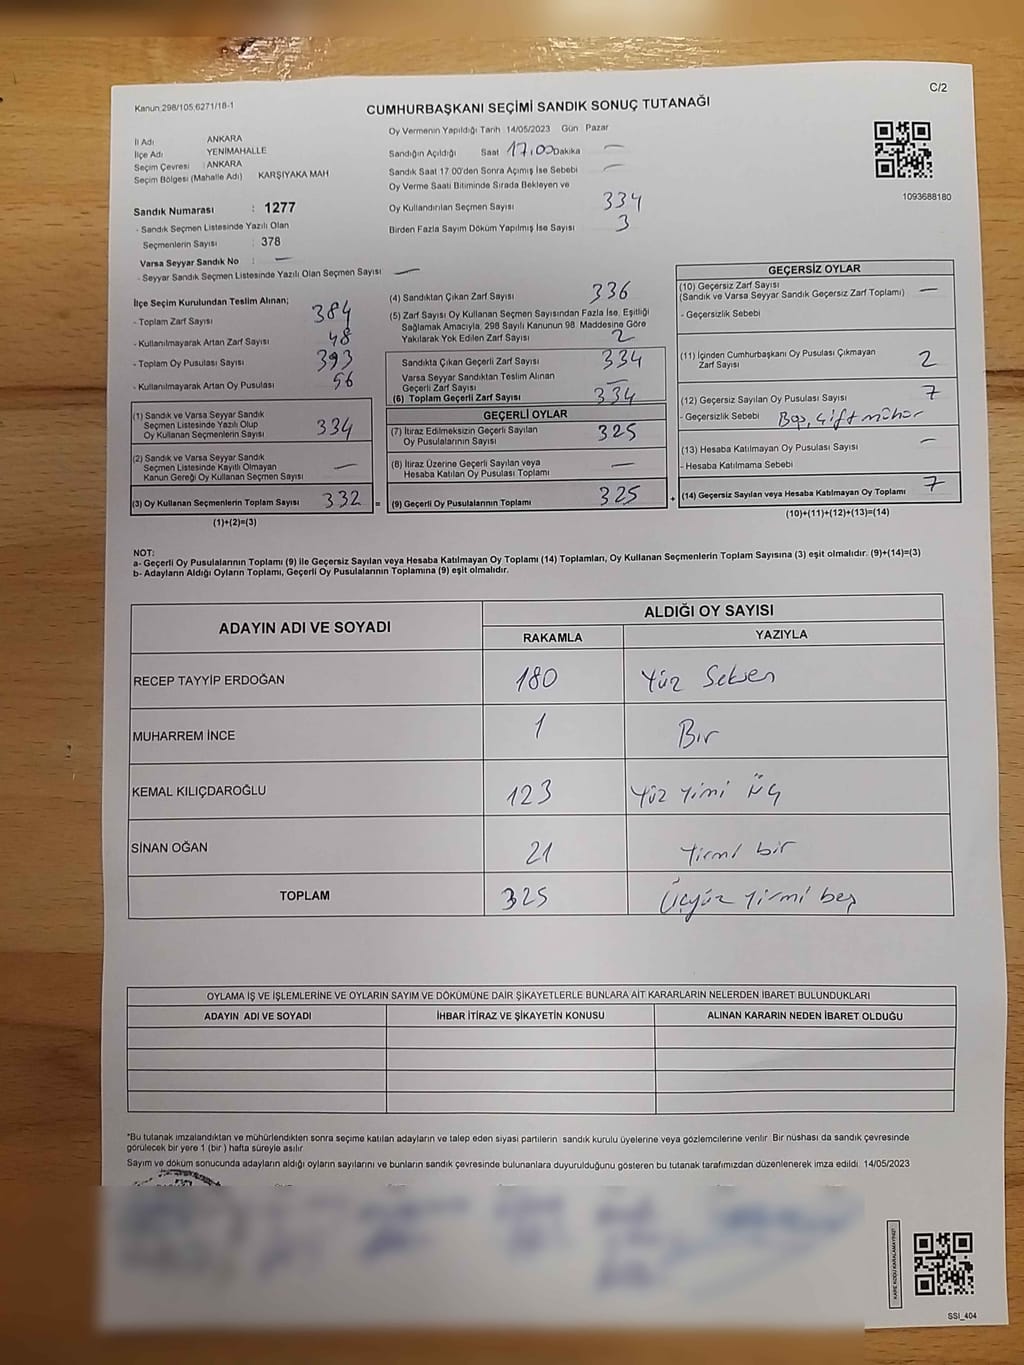 C/2
Kanun 298/105.6271/18-1
CUMHURBAŞKANI SEÇİMİ SANDIK SONUÇ TUTANAĞI
1093688180
İl Adı ANKARA
İlçe Adı YENİMAHALLE
Seçim Çevresi : ANKARA
Seçim Bölgesi (Mahalle Adı) KARŞIYAKA MAH
Sandık Numarası : 1277
- Sandık Seçmen Listesinde Yazılı Olan
Seçmenlerin Sayısı : 378
Varsa Seyyar Sandık No : —
- Seyyar Sandık Seçmen Listesinde Yazılı Olan Seçmen Sayısı —
Oy Vermenin Yapıldığı Tarih 14/05/2023 Gün Pazar
Sandığın Açıldığı Saat 17.00 Dakika —
Sandık Saat 17 00'den Sonra Açımış İse Sebebi —
Oy Verme Saati Bitiminde Sırada Bekleyen ve
Oy Kullandırılan Seçmen Sayısı 334
Birden Fazla Sayım Döküm Yapılmış İse Sayısı 3
İlçe Seçim Kurulundan Teslim Alınan;
- Toplam Zarf Sayısı 384
- Kullanılmayarak Artan Zarf Sayısı 48
- Toplam Oy Pusulası Sayısı 393
- Kullanılmayarak Artan Oy Pusulası 56
(1) Sandık ve Varsa Seyyar Sandık
Seçmen Listesinde Yazılı Olup
Oy Kullanan Seçmenlerin Sayısı 334
(2) Sandık ve Varsa Seyyar Sandık
Seçmen Listesinde Kayıtlı Olmayan
Kanun Gereği Oy Kullanan Seçmen Sayısı —
(3) Oy Kullanan Seçmenlerin Toplam Sayısı 332 =
(1)+(2)=(3)
(4) Sandıktan Çıkan Zarf Sayısı 336
(5) Zarf Sayısı Oy Kullanan Seçmen Sayısından Fazla İse, Eşitliği
Sağlamak Amacıyla, 298 Sayılı Kanunun 98. Maddesine Göre
Yakılarak Yok Edilen Zarf Sayısı 2
Sandıkta Çıkan Geçerli Zarf Sayısı 334
Varsa Seyyar Sandıktan Teslim Alınan
Geçerli Zarf Sayısı —
(6) Toplam Geçerli Zarf Sayısı 334
GEÇERLİ OYLAR
(7) İtiraz Edilmeksizin Geçerli Sayılan
Oy Pusulalarının Sayısı 325
(8) İtiraz Üzerine Geçerli Sayılan veya
Hesaba Katılan Oy Pusulası Toplamı —
(9) Geçerli Oy Pusulalarının Toplamı 325 +
GEÇERSİZ OYLAR
(10) Geçersiz Zarf Sayısı —
(Sandık ve Varsa Seyyar Sandık Geçersiz Zarf Toplamı)
- Geçersizlik Sebebi
(11) İçinden Cumhurbaşkanı Oy Pusulası Çıkmayan
Zarf Sayısı 2
(12) Geçersiz Sayılan Oy Pusulası Sayısı 7
- Geçersizlik Sebebi Boş, Çift mühür
(13) Hesaba Katılmayan Oy Pusulası Sayısı —
- Hesaba Katılmama Sebebi
(14) Geçersiz Sayılan veya Hesaba Katılmayan Oy Toplamı 7
(10)+(11)+(12)+(13)=(14)
NOT:
a- Geçerli Oy Pusulalarının Toplamı (9) ile Geçersiz Sayılan veya Hesaba Katılmayan Oy Toplamı (14) Toplamları, Oy Kullanan Seçmenlerin Toplam Sayısına (3) eşit olmalıdır. (9)+(14)=(3)
b- Adayların Aldığı Oyların Toplamı, Geçerli Oy Pusulalarının Toplamına (9) eşit olmalıdır.
ADAYIN ADI VE SOYADI ALDIĞI OY SAYISI
RAKAMLA YAZIYLA
RECEP TAYYİP ERDOĞAN 180 Yüz Seksen
MUHARREM İNCE 1 Bir
KEMAL KILIÇDAROĞLU 123 Yüz Yimi Üç
SİNAN OĞAN 21 Yirmi bir
TOPLAM 325 Üçyüz Yirmi beş
OYLAMA İŞ VE İŞLEMLERİNE VE OYLARIN SAYIM VE DÖKÜMÜNE DAİR ŞİKAYETLERLE BUNLARA AİT KARARLARIN NELERDEN İBARET BULUNDUKLARI
ADAYIN ADI VE SOYADI İHBAR İTİRAZ VE ŞİKAYETİN KONUSU ALINAN KARARIN NEDEN İBARET OLDUĞU
*Bu tutanak imzalandıktan ve mühürlendikten sonra seçime katılan adayların ve talep eden siyasi partilerin sandık kurulu üyelerine veya gözlemcilerine verilir Bir nüshası da sandık çevresinde
görülecek bir yere 1 (bir) hafta süreyle asılır
Sayım ve döküm sonucunda adayların aldığı oyların sayılarını ve bunların sandık çevresinde bulunanlara duyurulduğunu gösteren bu tutanak tarafımızdan düzenlenerek imza edildi 14/05/2023
KARE KODU KARALAMAYINIZ!
SSI_404